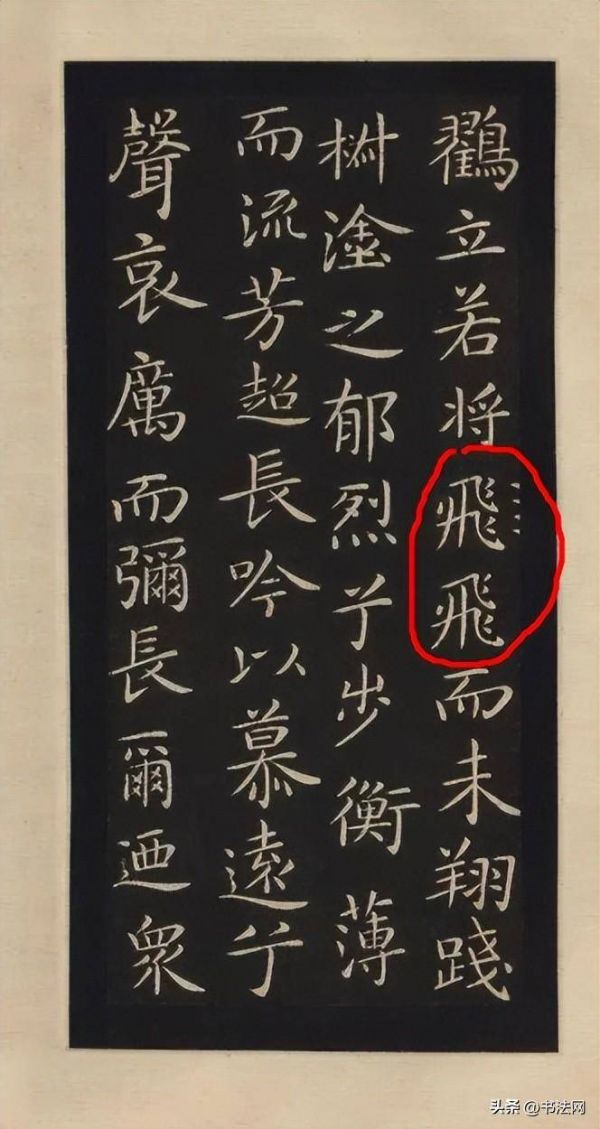 鶴立若将飛飛而未翔踐
椒塗之郁烈兮步衡薄
而流芳超長吟以慕遠兮
聲哀厲而彌長爾迺衆
头条 @书法网